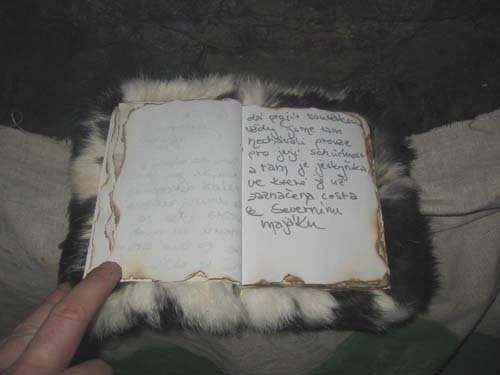 dá projít soutěskou
vždy jsme tam
nechávali provaz
pro její schůdnost
a tam je jeskyňka
ve které je už
zaznačena cesta
k Severnímu
majáku